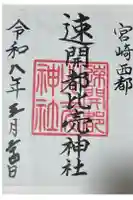 宮崎西都
速開都比売神社
令和八年三月